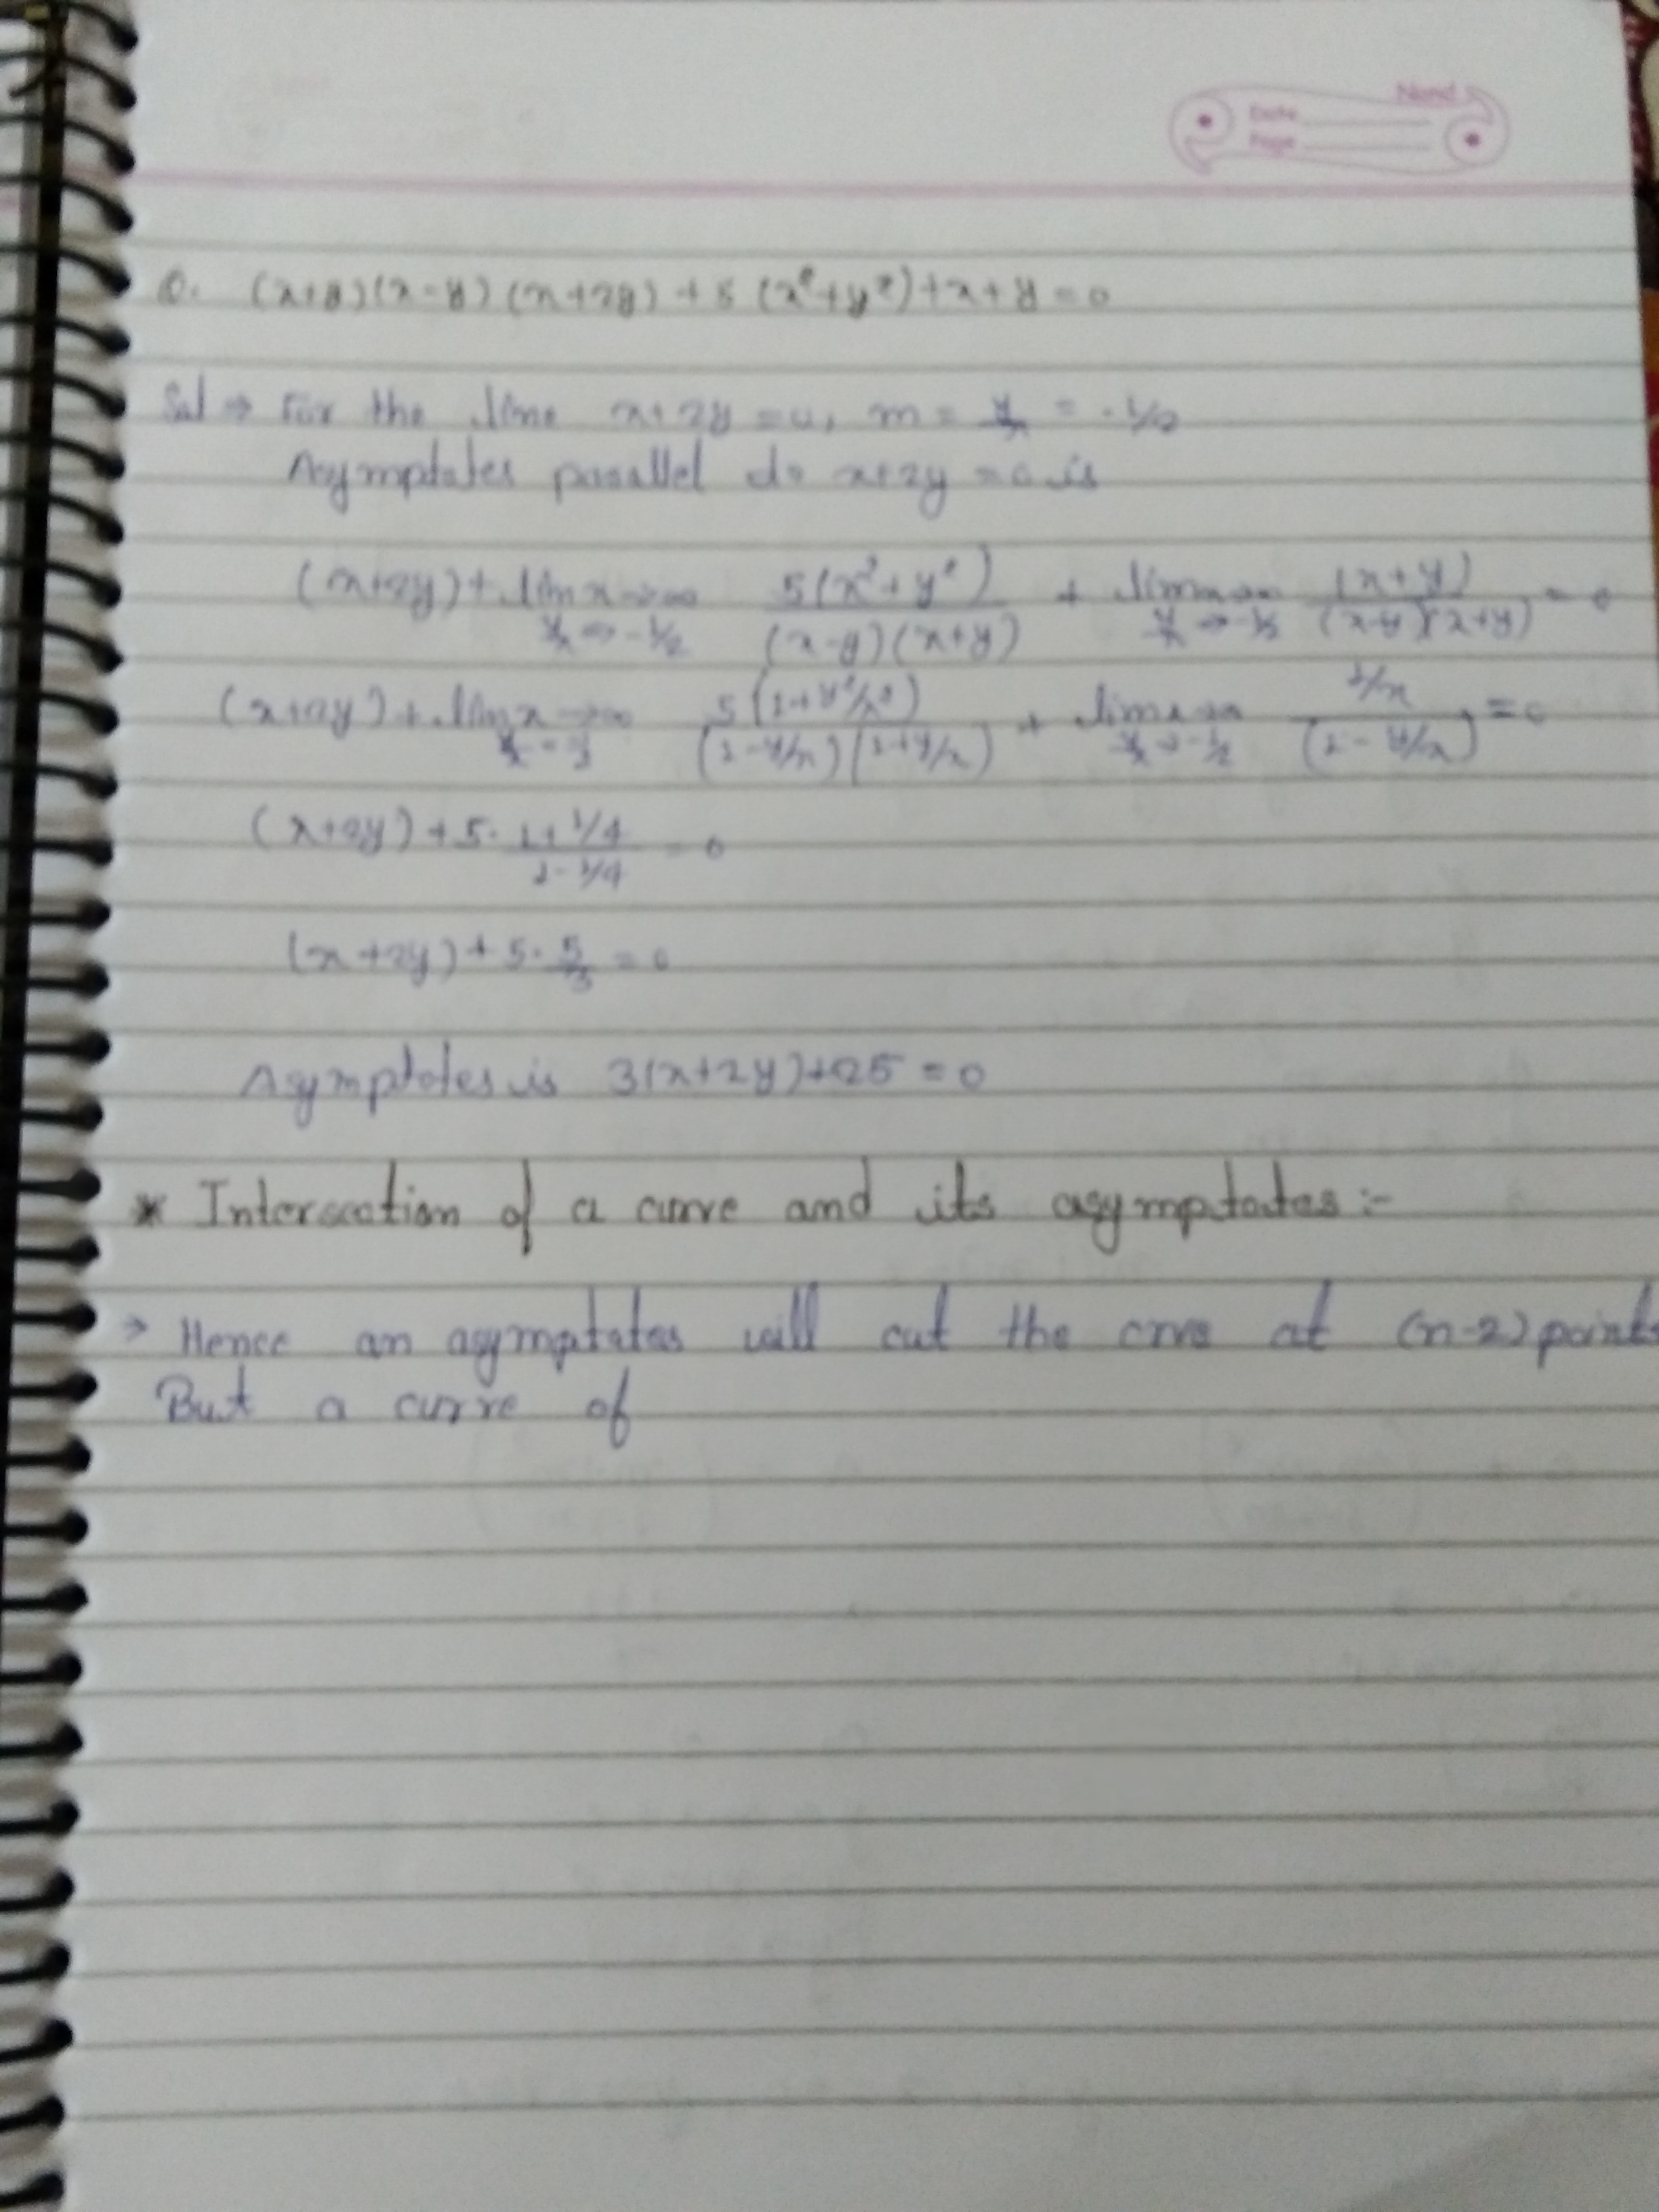 Nand
Date
Page
Q. (x+y)(x-y)(x+2y)+5(x²+y²)+x+y=0
Sol ⇒ For the line x+2y=0, m = y/x = -1/2
Asymptotes parallel do x+2y=0 is
(x+2y) + lim x→∞ y/x→-1/2 5(x²+y²)/(x-y)(x+y) + lim x→∞ y/x→-1/2 (x+y)/(x-y)(x+y) = 0
(x+2y) + lim x→∞ 5(1+y²/x²)/(1-y/x)(1+y/x) + lim x→∞ y/x→-1/2 1/x/(1-y/x) = 0
(x+2y)+5. 1+1/4/1-1/4 = 0
(x+2y)+5. 5/3 = 0
Asymptotes is 3(x+2y)+25=0
* Intersection of a curve and its asymptotes:-
→ Hence an asymptotes will cut the crve at (n-2) points
But a curve of